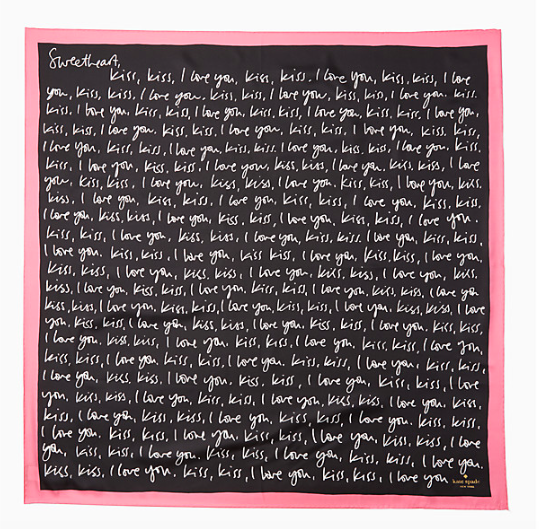 Sweetheart,
kiss, kiss, I love you, kiss, kiss. I love you, kiss, kiss, I love
you, kiss, kiss, I love you. kiss, kiss, I love you, kiss, kiss, I love you. kiss.
kiss. I love you, kiss, kiss, I love you, kiss, kiss, I love you, kiss, kiss, I love you,
kiss, kiss, I love you, kiss, kiss, I love you, kiss, kiss, I love you, kiss. kiss,
I love you, kiss, kiss, I love you, kiss, kiss. I love you, kiss, kiss, I love you, kiss.
kiss, I love you, kiss, kiss, I love you, kiss, kiss, I love you, kiss, kiss, I love
you, kiss, kiss, I love you, kiss, kiss, I love you, kiss, kiss, I love you, kiss.
kiss, I love you, kiss, kiss, I love you, kiss, kiss, I love you, kiss, kiss,
I love you, kiss, kiss, I love you, kiss, kiss, I love you, kiss, kiss, I love you.
kiss, kiss, I love you, kiss, kiss, I love you, kiss, kiss. I love you, kiss, kiss,
I love you. kiss, kiss, I love you, kiss, kiss, I love you, kiss, kiss, I love you,
kiss, kiss, I love you, kiss, kiss, I love you, kiss, kiss, I love you, kiss,
kiss, I love you, kiss, kiss, I love you, kiss, kiss, I love you, kiss, kiss, I love you
kiss, kiss, I love you, kiss, kiss, I love you, kiss, kiss, I love you, kiss, kiss, I love
you. kiss, kiss, I love you, kiss, kiss, I love you. kiss, kiss, I love you, kiss, kiss,
I love you, kiss, kiss, I love you, kiss, kiss, I love you, kiss, kiss, I love you,
kiss, kiss, I love you. kiss, kiss, I love you, kiss, kiss, I love you, kiss, kiss,
I love you, kiss, kiss, I love you, kiss, kiss, I love you, kiss, kiss, I love
you, kiss, kiss, I love you, kiss, kiss, I love you, kiss, kiss, I love you. kiss,
kiss, I love you, kiss, kiss, I love you, kiss, kiss, I love you, kiss, kiss,
I love you. kiss, kiss, I love you, kiss, kiss, I love you, kiss, kiss, I love
you, kiss, kiss, I love you, kiss, kiss, I love you, kiss, kiss, I love you.
kiss, kiss, I love you. kiss, kiss, I love you, kiss, kiss, I love you
kate spade
NEW YORK